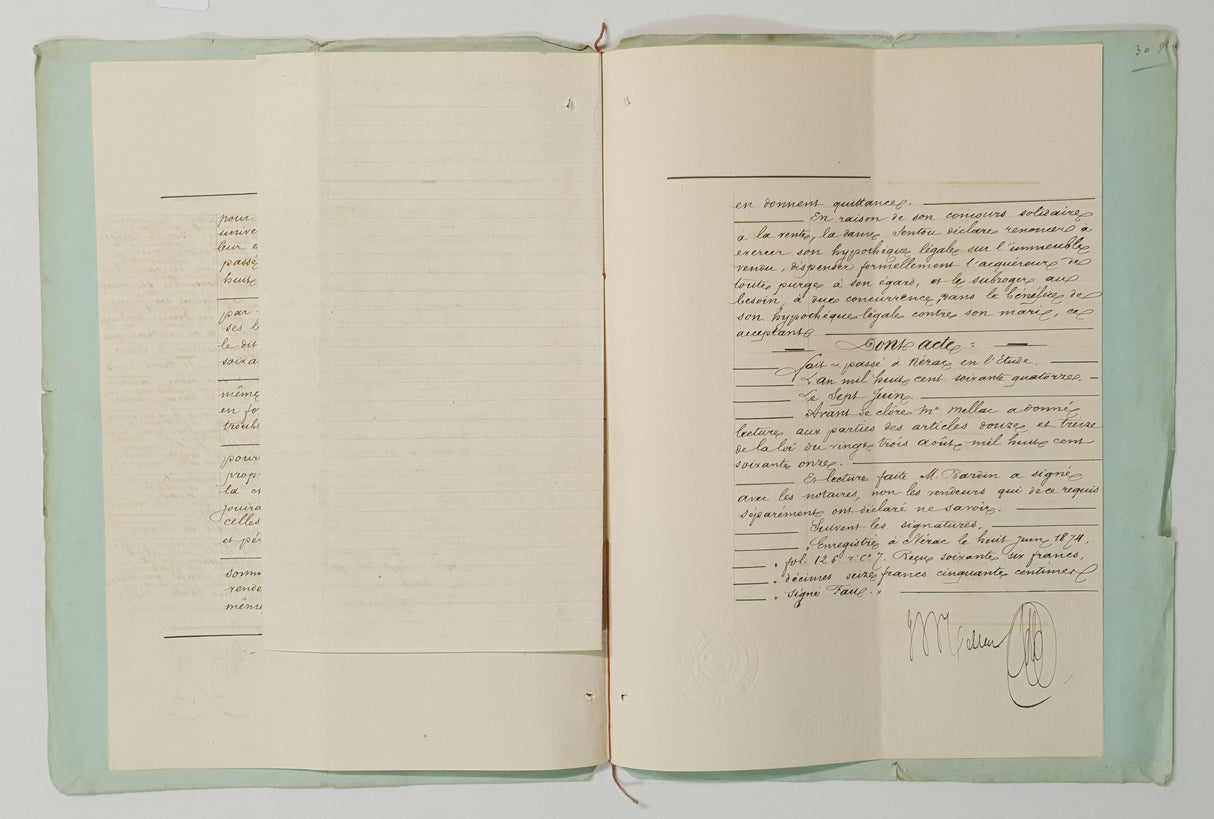 pour
unive
leur e
passé
huit
par
ses b
le dit
soixa
même
en fo
troubl
pour
prop
la c
jouira
celles
et pér
somm
vende
même
30
en donnent quittance.
En raison de son concours solidaire
à la vente, la dame Sentou déclare renoncer à
exercer son hypothèque légale sur l'immeuble
vendu, dispenser formellement l'acquéreur de
toute purge à son égard, et le subroger au
besoin, à due concurrence, dans le bénéfice de
son hypothèque légale contre son mari, ce
acceptant.
Dont acte :
Fait et passé à Nérac en l'Étude.
L'an mil huit cent soixante quatorze,
Le Sept Juin.
Avant de clore Me Mellac a donné
lecture aux parties des articles douze et treize
de la loi du vingt trois août mil huit cent
soixante onze.
Et lecture faite M. Bardin a signé
avec les notaires, non les vendeurs qui de ce requis
séparément ont déclaré ne savoir.
Suivent les signatures.
"Enregistré à Nérac le huit juin 1874,
" fol. 126 r. c. 7. Reçu soixante six francs,
" décimes seize francs cinquante centimes
" signé Faux."
Mellac